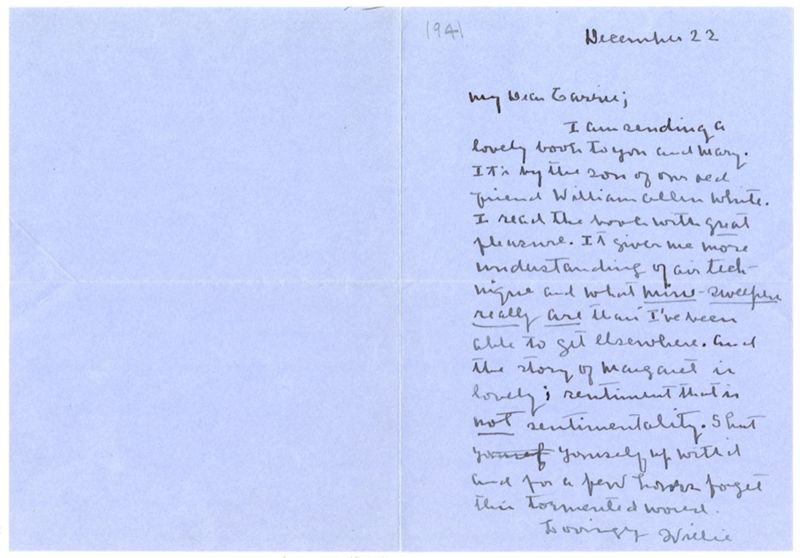 1941
December 22
My Dear Carrie;
I am sending a
lovely book to you and Mary.
It's by the son of our old
friend William Allen White.
I read the book with great
pleasure. It gives me more
understanding of air tech-
nique and what mine-sweepers
really are than I've been
able to get elsewhere. And
the story of Margaret is
lovely; sentiment that is
not sentimentality. Shut
yourself up with it
and for a few hours forget
this tormented world.
Lovingly Willie